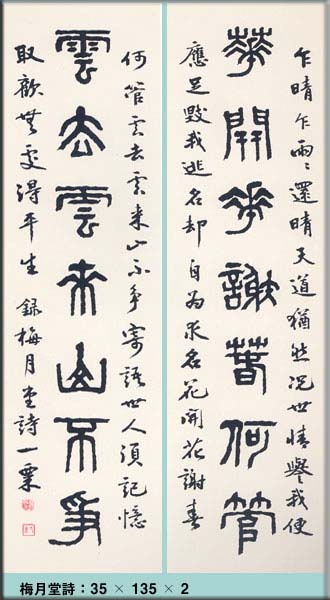 乍晴乍雨〻還晴天道猶然况世情譽我便
華開華謝萅何管
應是毀我逃名却自為求名花開花謝春
何管雲去雲来山不争寄語世人須記憶
雲去雲來山不爭
取歡無處得平生 錄梅月堂詩一粟
梅月堂詩：35 × 135 × 2